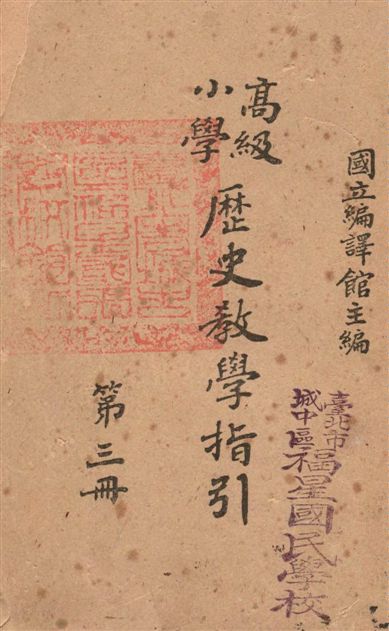 國立編譯館主編
高級
小學
歷史教學指引
第三冊
臺北市
城中區
福星國民學校